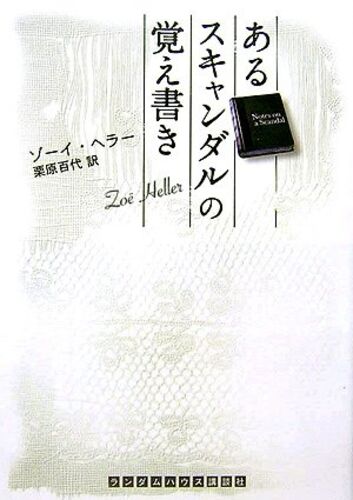 ある
スキャンダルの
覚え書き
Notes on
a Scandal
ゾーイ・ヘラー
栗原百代 訳
Zoë Heller
ランダムハウス講談社